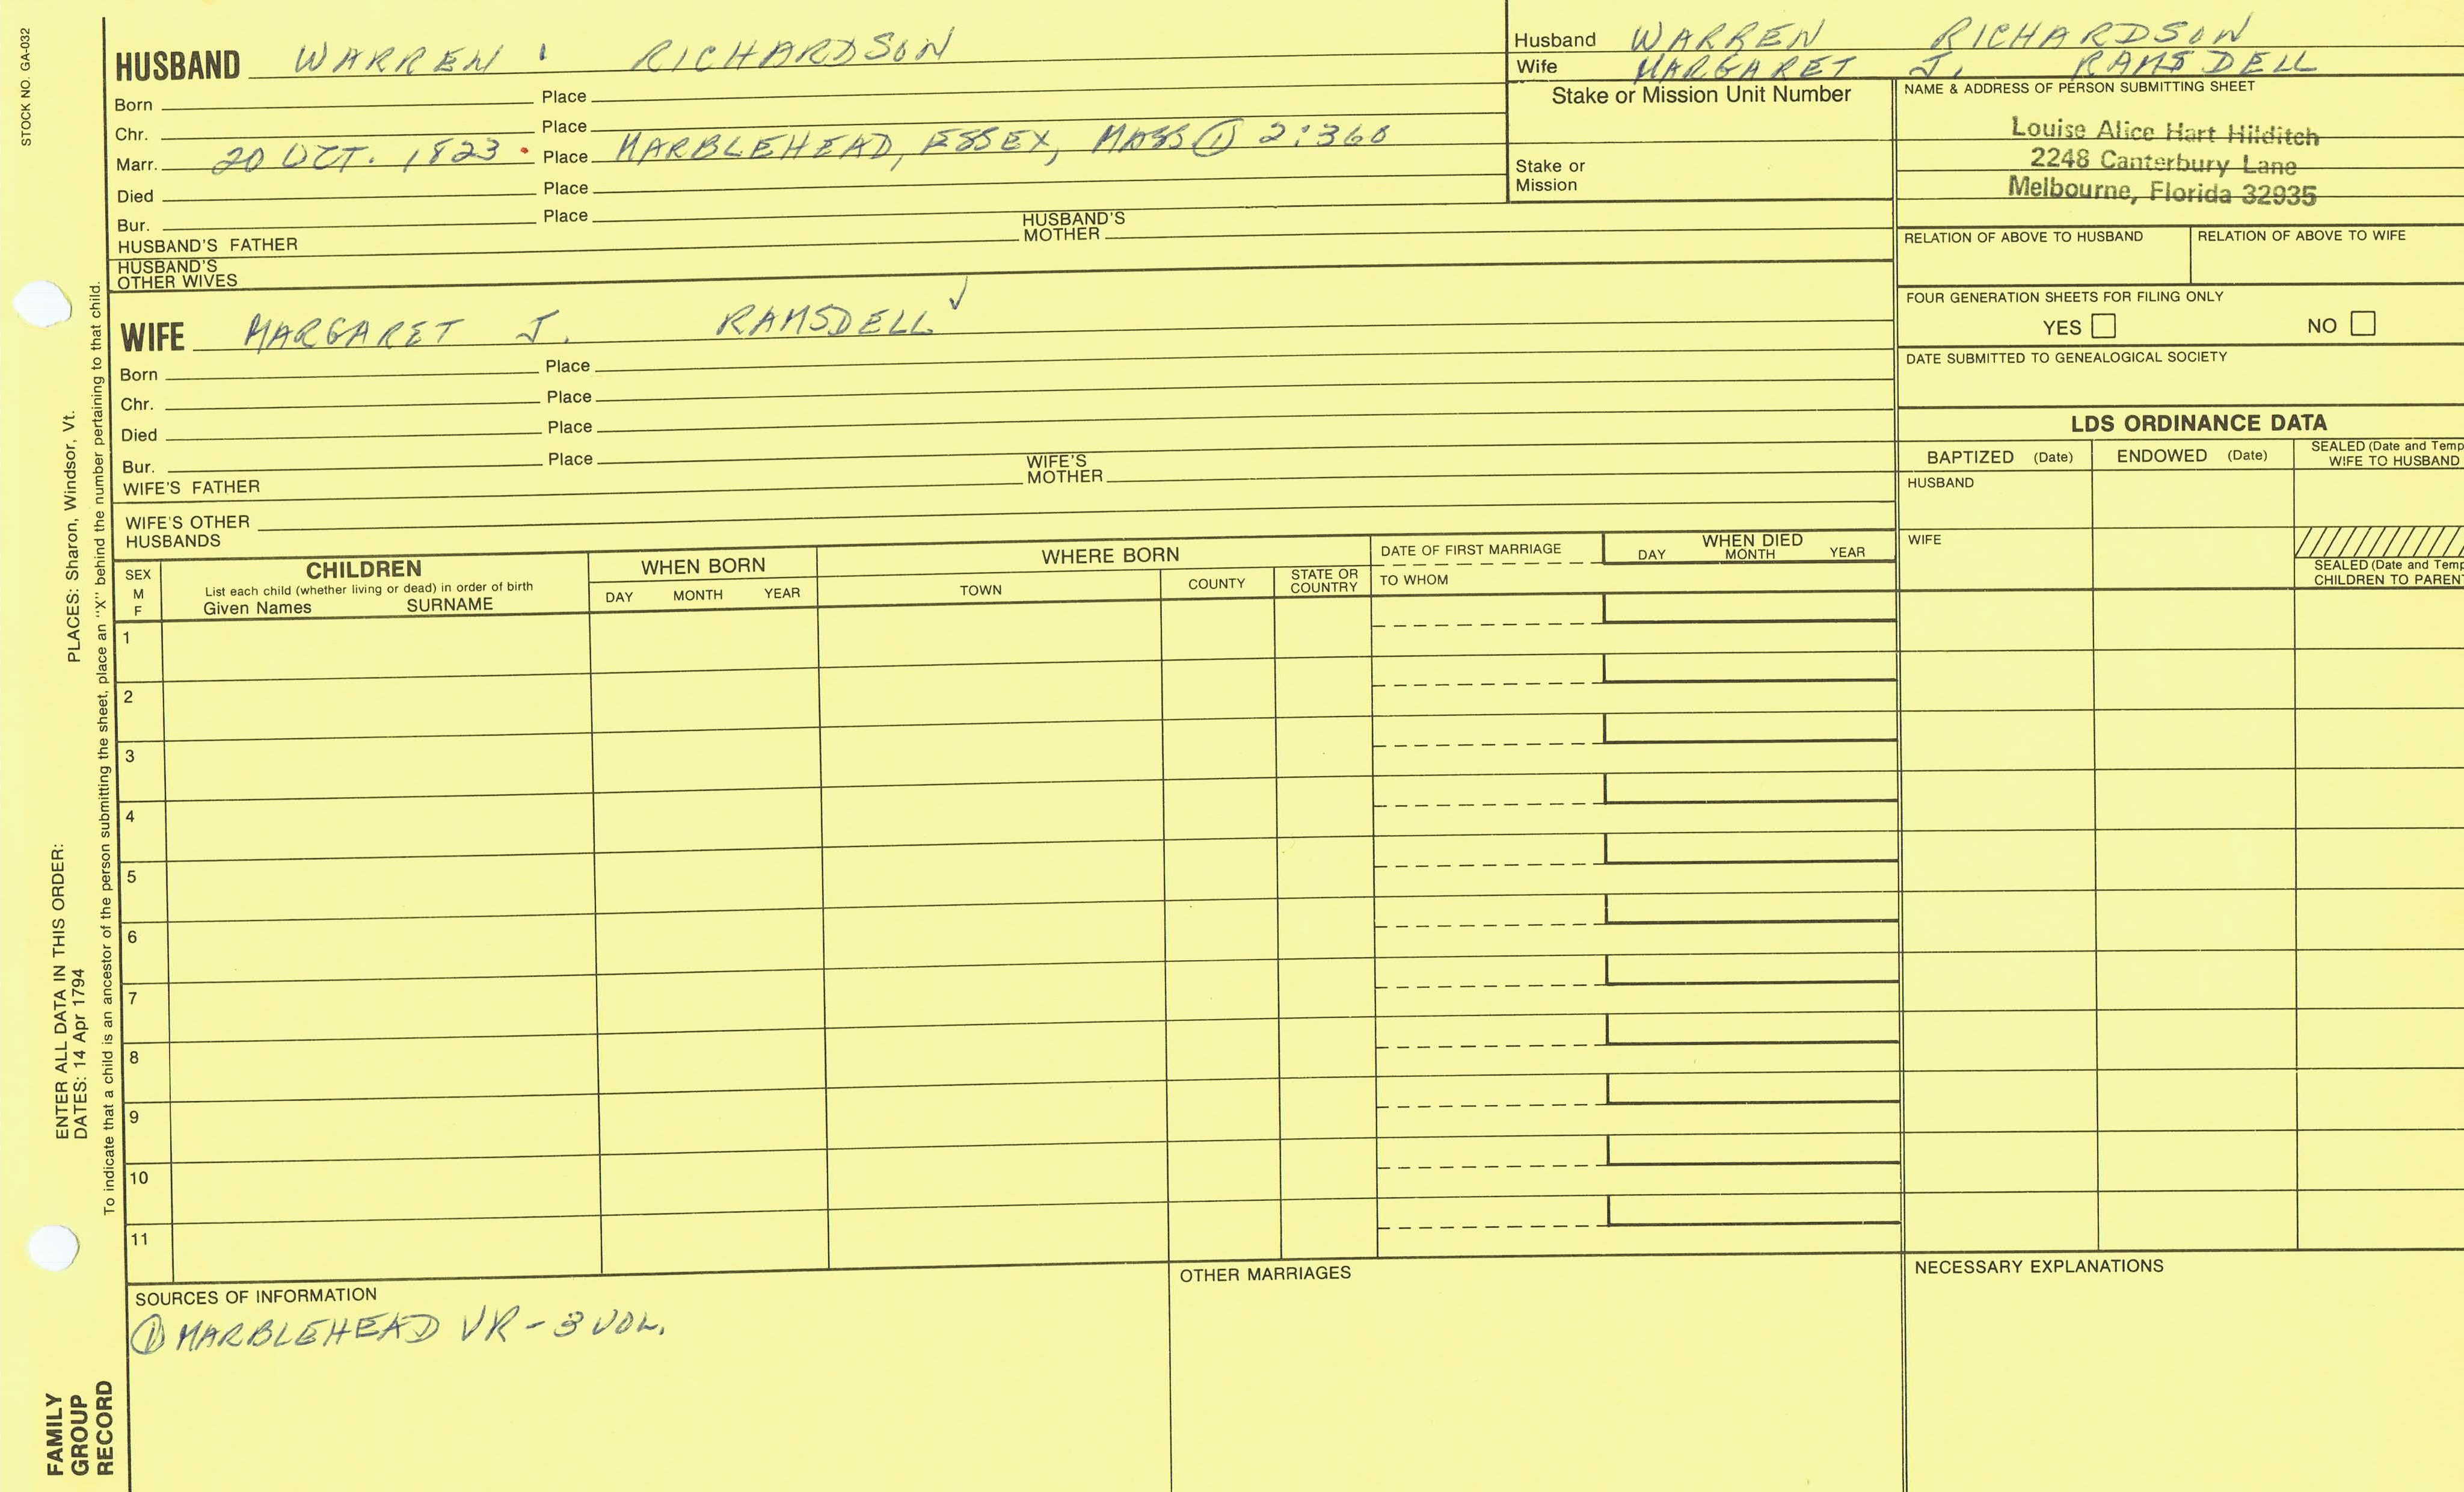 STOCK NO. GA-032
HUSBAND WARREN RICHARDSON
Born Place
Chr. Place
Marr. 20 OCT. 1823 Place MARBLEHEAD, ESSEX, MASS ① 2:360
Died Place
Bur. Place
HUSBAND'S FATHER HUSBAND'S MOTHER
HUSBAND'S OTHER WIVES
WIFE MARGARET J. RAMSDELL ✓
Born Place
Chr. Place
Died Place
Bur. Place
WIFE'S FATHER WIFE'S MOTHER
WIFE'S OTHER HUSBANDS
Husband WARREN RICHARDSON
Wife MARGARET J. RAMSDELL
Stake or Mission Unit Number
Stake or
Mission
NAME & ADDRESS OF PERSON SUBMITTING SHEET
Louise Alice Hart Hilditch
2248 Canterbury Lane
Melbourne, Florida 32935
RELATION OF ABOVE TO HUSBAND RELATION OF ABOVE TO WIFE
FOUR GENERATION SHEETS FOR FILING ONLY
YES NO
DATE SUBMITTED TO GENEALOGICAL SOCIETY
LDS ORDINANCE DATA
BAPTIZED (Date) ENDOWED (Date) SEALED (Date and Temp
WIFE TO HUSBAND
HUSBAND
WIFE
SEALED (Date and Temp
CHILDREN TO PAREN
SEX
M
F
CHILDREN
List each child (whether living or dead) in order of birth
Given Names SURNAME
WHEN BORN
DAY MONTH YEAR
WHERE BORN
TOWN COUNTY STATE OR COUNTRY
DATE OF FIRST MARRIAGE
TO WHOM
WHEN DIED
DAY MONTH YEAR
1
2
3
4
5
6
7
8
9
10
11
SOURCES OF INFORMATION
① MARBLEHEAD VR - 3 VOL.
OTHER MARRIAGES
NECESSARY EXPLANATIONS
ENTER ALL DATA IN THIS ORDER:
DATES: 14 Apr 1794
PLACES: Sharon, Windsor, Vt.
To indicate that a child is an ancestor of the person submitting the sheet, place an "X" behind the number pertaining to that child.
FAMILY
GROUP
RECORD